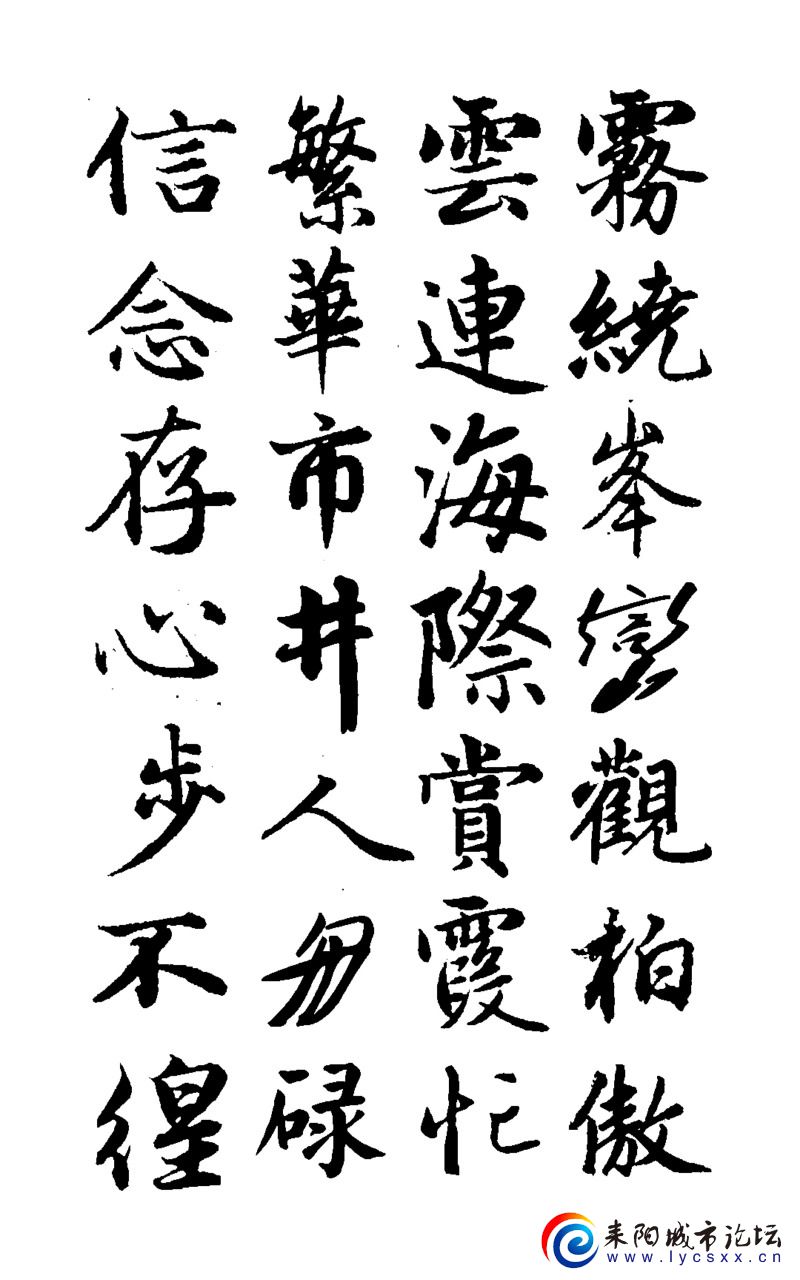 霧繞峯巒觀柏傲
雲連海際賞霞忙
繁華市井人勿碌
信念存心步不徨
耒阳城市论坛
www.lycsxx.cn